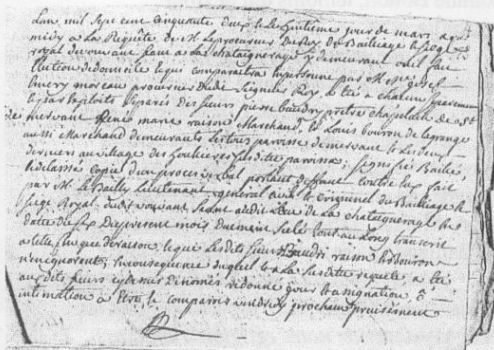 L'an mil sept cent cinquante deux & le huitième jour de mars a
midy a La Requête de M. Le procureur Du Roy du Bailliage & siege
royal de vouvant seant a La chataigneraye y demeurant ou il fait
Election de domicile & qui comparaitra en personne par M.
moreau procureur dudit seigneur Roy, a été a chacun
par Exploits separés des sieurs pierre boudry prêtre chapelain de
mervant René marie raison Marchand, & Louis bouron de lagrange
aussi Marchand demeurants es tous parroisse de mervant & Les deux
derniers au village des houlieres susditte parroisse; signifié Baillé,
& delaissé copie d'un procès verbal portant deffaut contre Eux fait
par M. Le Bailly Lieutenant general civil & criminel du Bailliage &
siege Royal dudit vouvant seant audit Lieu de La chataigneraye
datté du six Du present mois Duement Scelé tout au Long transcrit
a celle fin que de raison, & que Lesdits sieurs Boudri raison & Bouron
n'en ignorent; En consequence duquel & a La susditte requête, a été
aux dits sieurs cy dessus denommés donné jour & assignation &
intimation a Etre, & comparoir vendredy prochain precisement